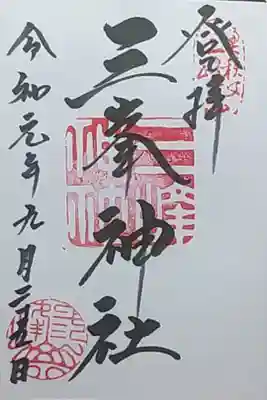 登拝
三峯神社
令和元年九月二十五日